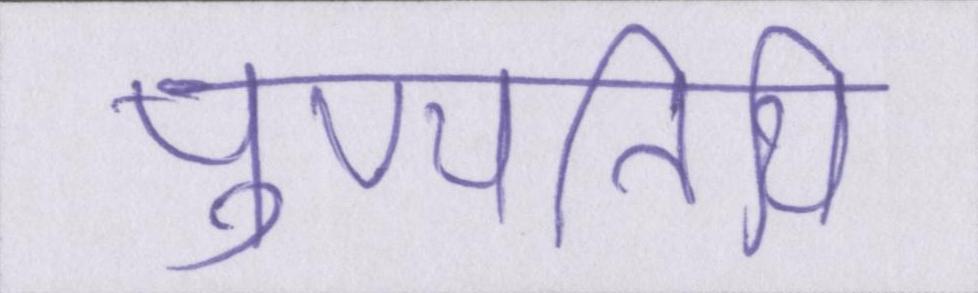 पुण्यतिथि